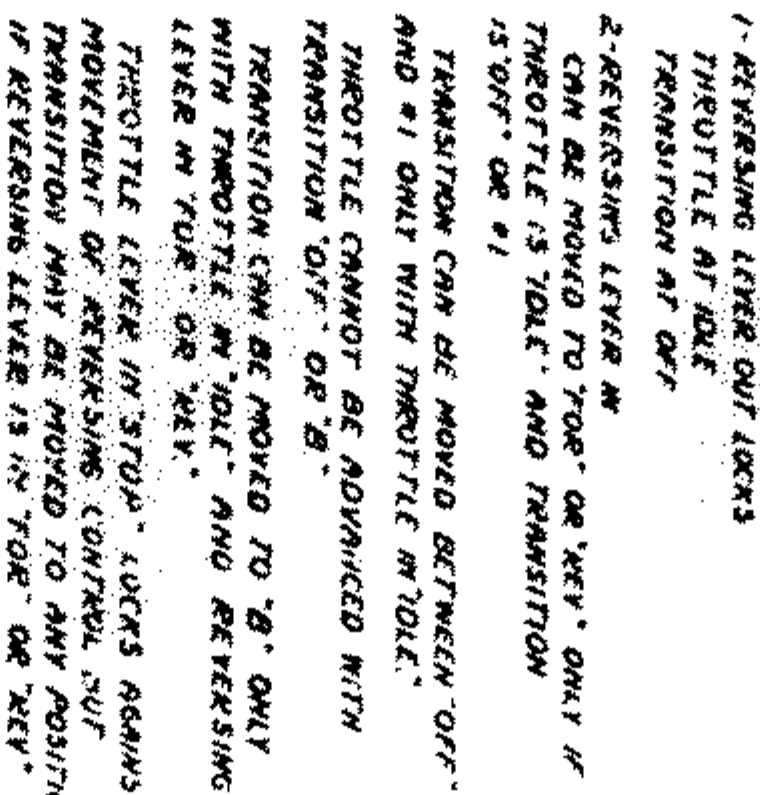 1- REVERSING LEVER OUT LOCKS
THROTTLE AT IDLE
TRANSITION AT OFF
2-REVERSING LEVER IN
CAN BE MOVED TO "FOR" OR "REV" ONLY IF
THROTTLE IS "IDLE" AND TRANSITION
IS "OFF" OR #1
TRANSITION CAN BE MOVED BETWEEN "OFF"
AND #1 ONLY WITH THROTTLE IN "IDLE."
THROTTLE CANNOT BE ADVANCED WITH
TRANSITION "OFF" OR "B"
TRANSITION CAN BE MOVED TO "B" ONLY
WITH THROTTLE IN "IDLE" AND REVERSING
LEVER IN "FOR" OR "REV."
THROTTLE LEVER IN "STOP" LOCKS AGAINS
MOVEMENT OF REVERSING CONTROL BUT
TRANSITION MAY BE MOVED TO ANY POSITI
IF REVERSING LEVER IS IN "FOR" OR "REV"